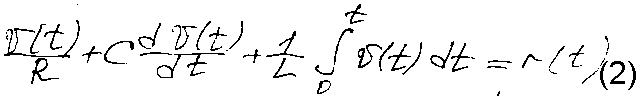 v(t)/R + C dv(t)/dt + 1/L ∫₀ᵗ v(t) dt = r(t) (2)